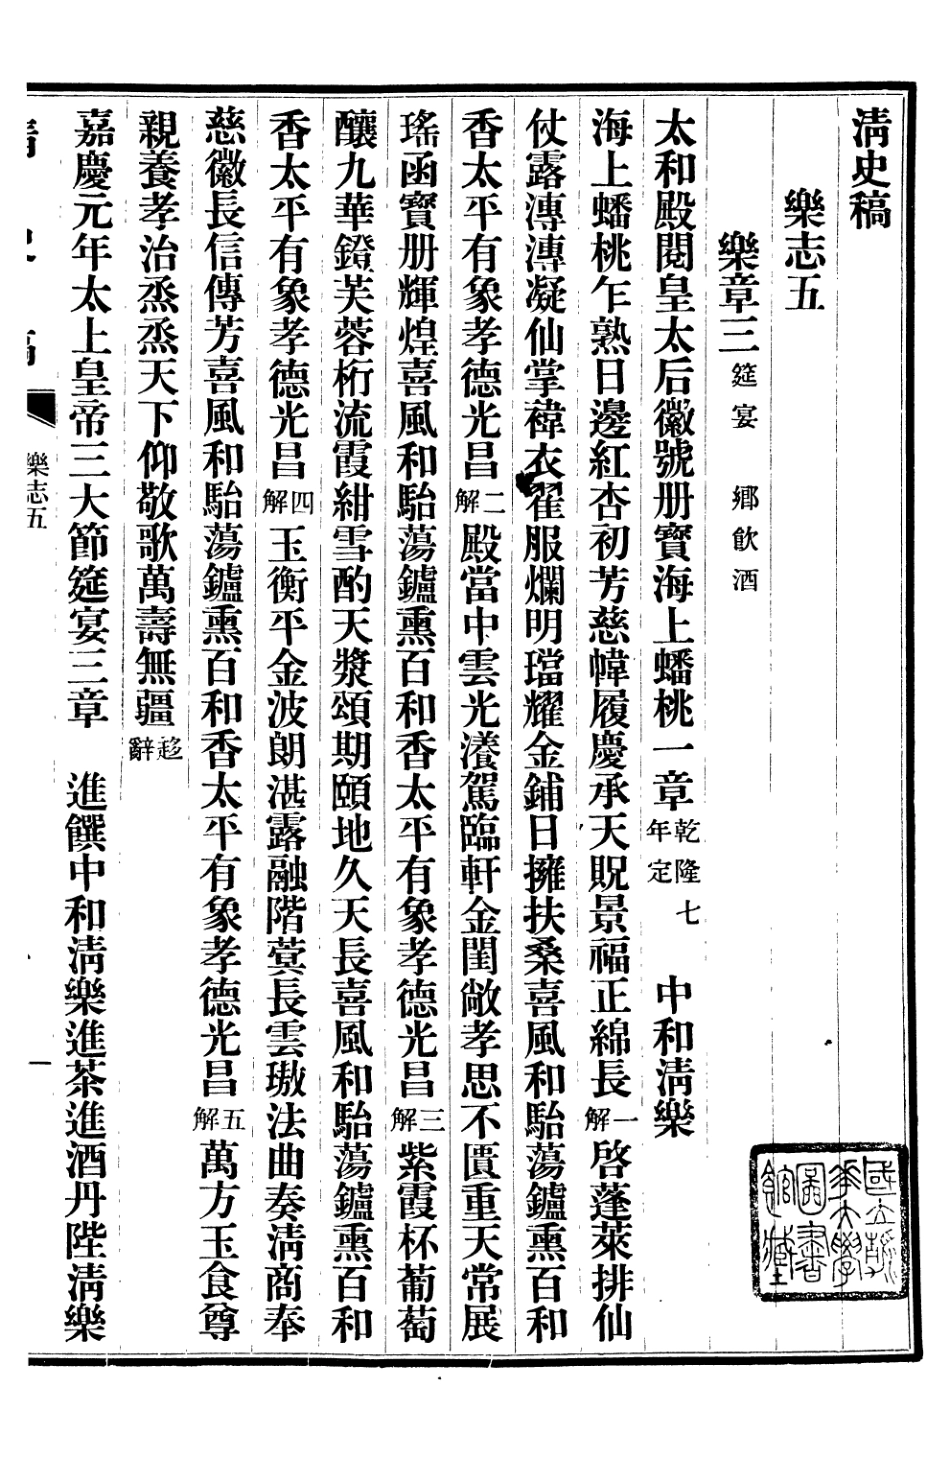 清史稿
樂志五
樂章三筵宴　鄉飲酒
太和殿閱皇太后徽號册寶海上蟠桃一章乾隆七年定　中和淸樂
海上蟠桃乍熟日邊紅杏初芳慈幃履慶承天貺景福正綿長一解啓蓬萊排仙
仗露漙漙凝仙掌褘衣翟服爛明璫耀金鋪日擁扶桑喜風和駘蕩鑪熏百和
香太平有象孝德光昌二解殿當中雲光瀁駕臨軒金閨敞孝思不匱重天常展
瑤函寶册輝煌喜風和駘蕩鑪熏百和香太平有象孝德光昌三解紫霞杯葡萄
釀九華鐙芙蓉桁流霞紺雪酌天漿頌期頤地久天長喜風和駘蕩鑪熏百和
香太平有象孝德光昌四解玉衡平金波朗湛露融階蓂長雲璈法曲奏淸商奉
慈徽長信傳芳喜風和駘蕩鑪熏百和香太平有象孝德光昌五解萬方玉食尊
親養孝治烝烝天下仰敬歌萬壽無疆趍辭
嘉慶元年太上皇帝三大節筵宴三章　進饌中和淸樂進茶進酒丹陛淸樂
樂志五
一
國立淸華大學圖書館藏